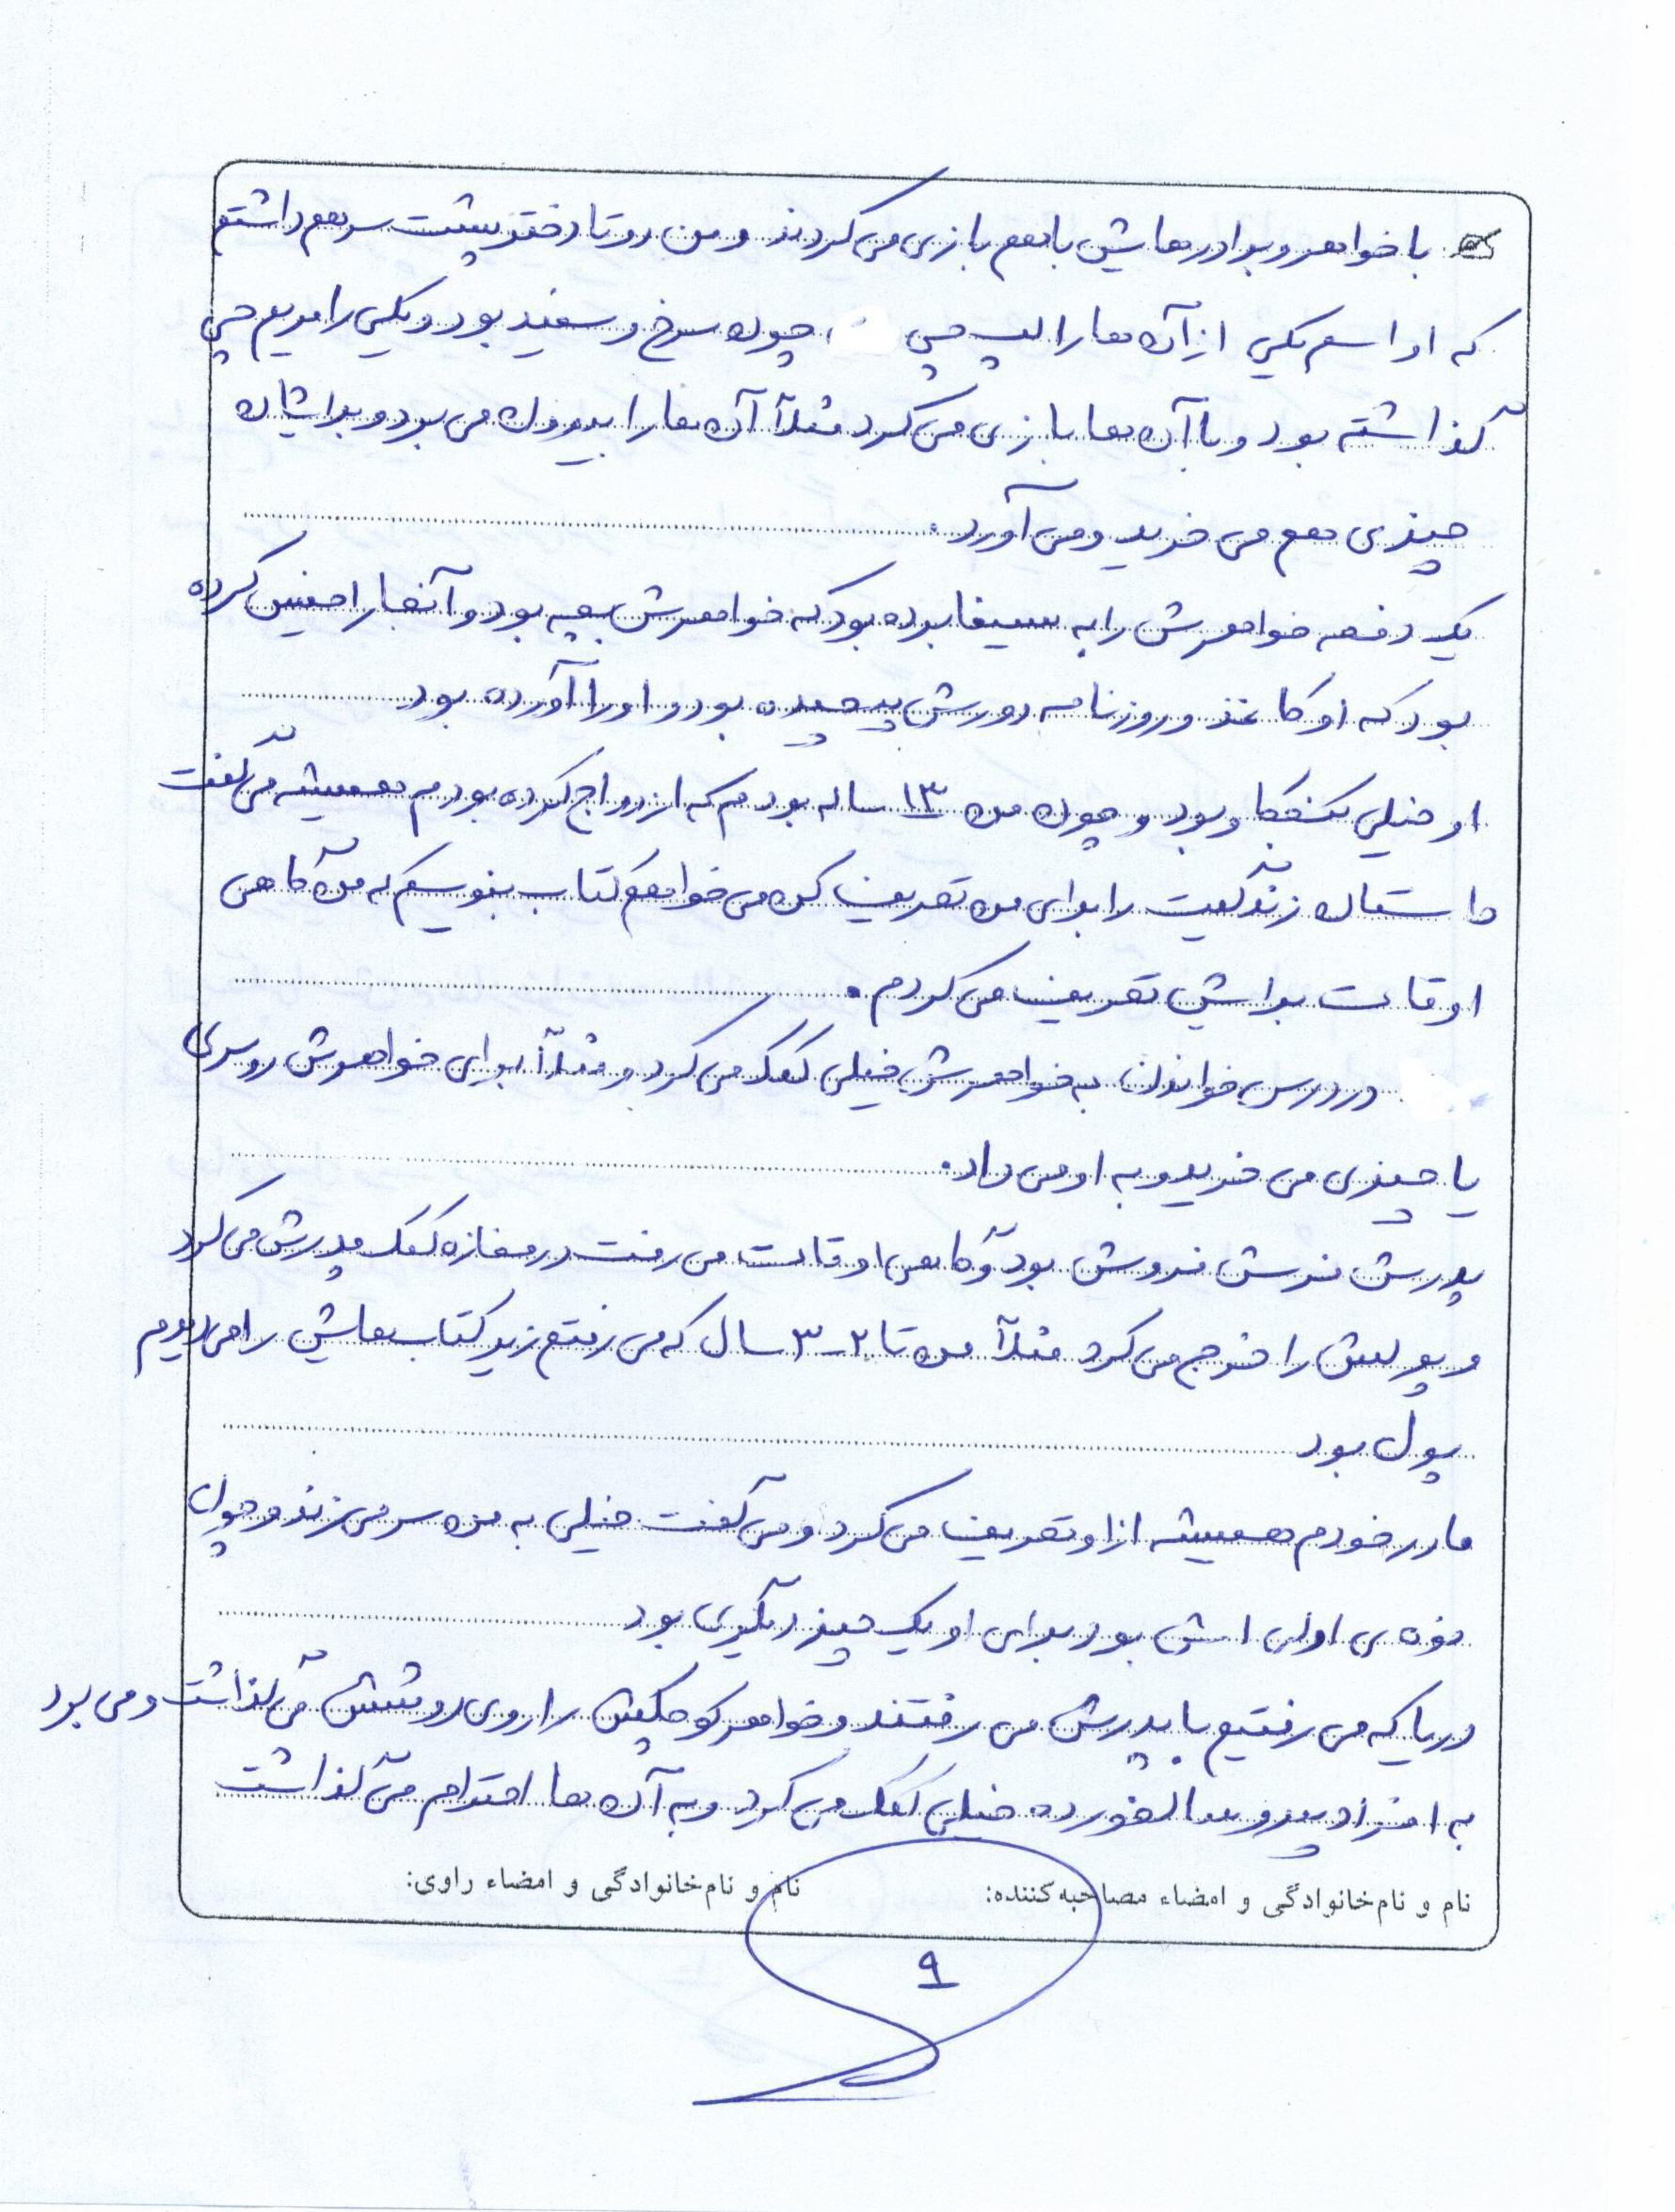 با خواهر و برادرهایش با هم بازی می‌کردند و من دو تا دختر پشت سر هم داشتم
که او اسم یکی از آن‌ها را لپ چی ، چون سرخ و سفید بود و یکی را مریم چی
گذاشته بود و با آن‌ها بازی می‌کرد مثلاً آن‌ها را بیرون می‌برد و برایشان
چیزی هم می‌خرید و می‌آورد.
یک دفعه خواهرش را به سینما برده بود که خواهرش بچه بود و آنجا را خیس کرده
بود که او کاغذ و روزنامه دورش پیچیده بود و او را آورده بود
او خیلی کنجکاو بود و چون من ۱۳ ساله بودم که ازدواج کرده بودم همیشه می‌گفت
داستان زندگیت را برای من تعریف کن می‌خواهم کتاب بنویسم که من گاهی
اوقات برایش تعریف می‌کردم.
در درس خواندن به خواهرش خیلی کمک می‌کرد و مثلاً برای خواهرش روسری
یا چیزی می‌خرید و به او می‌داد.
پدرش فرش فروش بود و گاهی اوقات می‌رفت در مغازه کمک پدرش می‌کرد
و پولش را خرج می‌کرد مثلاً من تا ۲-۳ سال که می‌رفتم زیر کتاب‌هایش را می‌دیدم
پول بود
مادر خودم همیشه از او تعریف می‌کرد و می‌گفت خیلی به من سر می‌زند و چون
نوه‌ی اولی اش بود برای او یک چیز دیگری بود
دریا که می‌رفتیم با پدرش می‌رفتند و خواهر کوچکش را روی دوشش می‌گذاشت و می‌برد
به افراد پیر و سالخورده خیلی کمک می‌کرد و به آن‌ها احترام می‌گذاشت
نام و نام‌خانوادگی و امضاء مصاحبه‌کننده: نام و نام‌خانوادگی و امضاء راوی:
۹